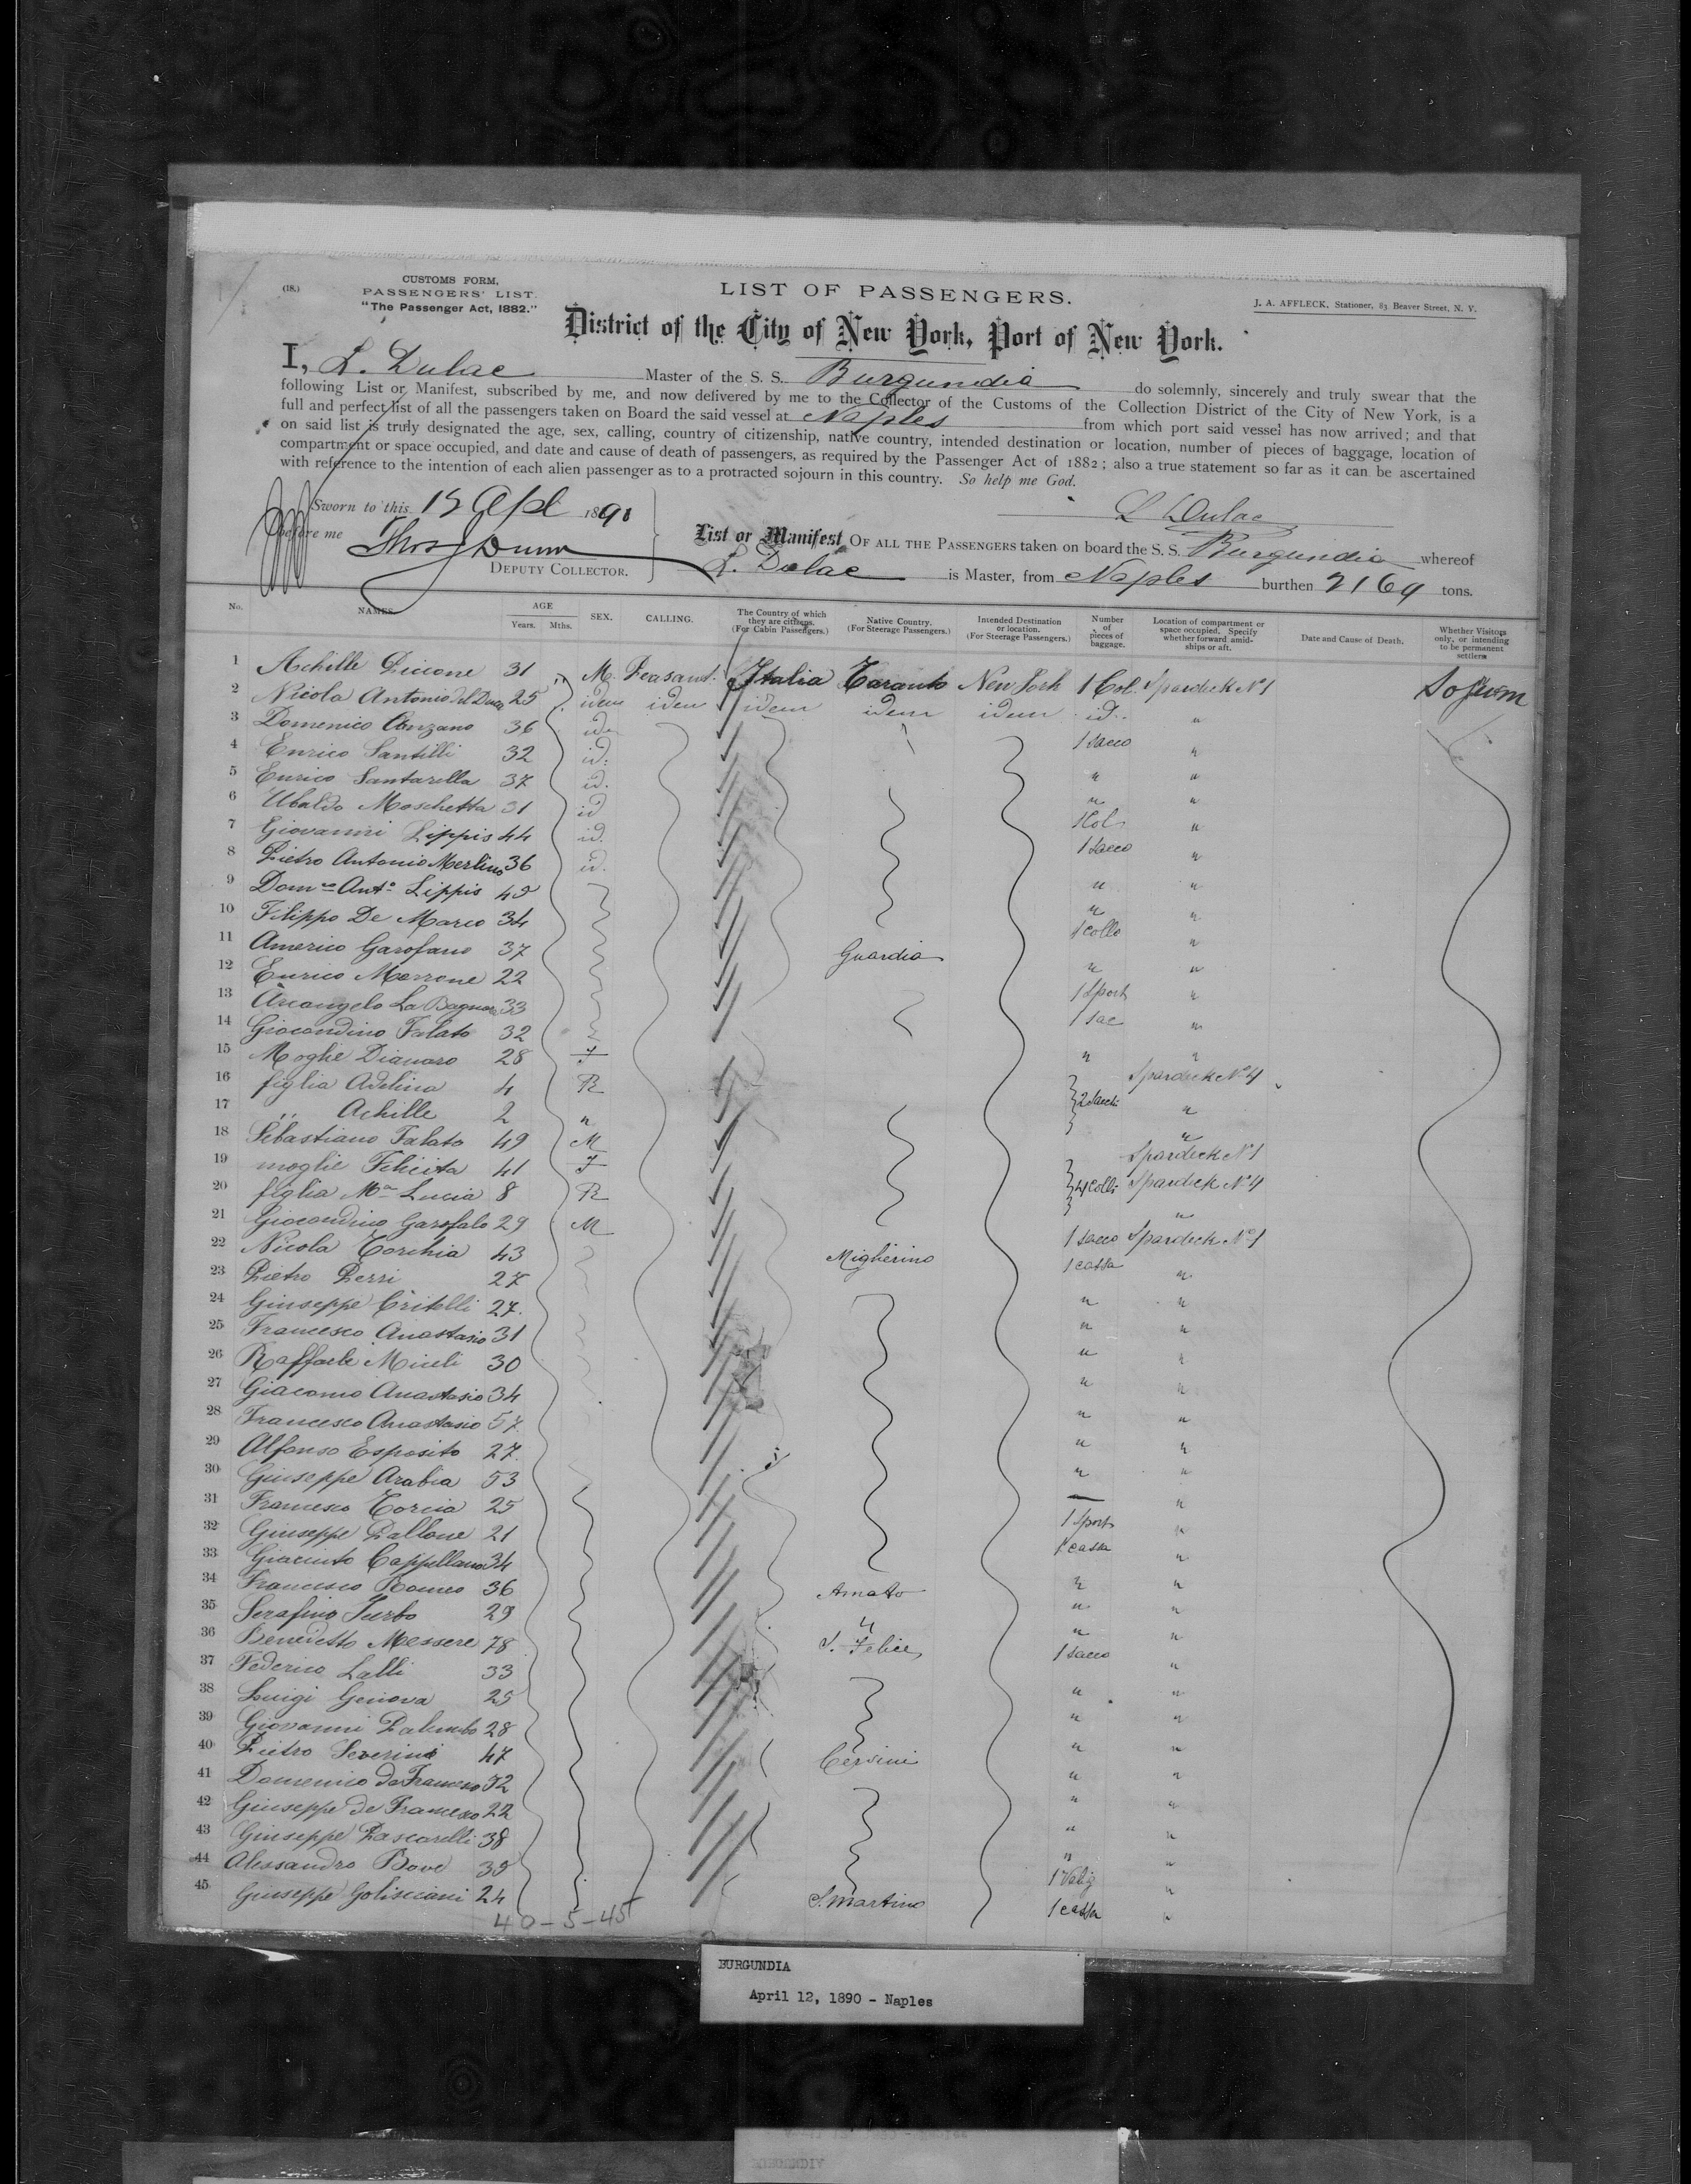 (18.)
CUSTOMS FORM,
PASSENGERS' LIST.
"The Passenger Act, 1882."
LIST OF PASSENGERS.
J. A. AFFLECK, Stationer, 83 Beaver Street, N. Y.
District of the City of New York, Port of New York.
I, L. Dulac Master of the S. S. Burgundia do solemnly, sincerely and truly swear that the
following List or Manifest, subscribed by me, and now delivered by me to the Collector of the Customs of the Collection District of the City of New York, is a
full and perfect list of all the passengers taken on Board the said vessel at Naples from which port said vessel has now arrived; and that
on said list is truly designated the age, sex, calling, country of citizenship, native country, intended destination or location, number of pieces of baggage, location of
compartment or space occupied, and date and cause of death of passengers, as required by the Passenger Act of 1882; also a true statement so far as it can be ascertained
with reference to the intention of each alien passenger as to a protracted sojourn in this country. So help me God.
Sworn to this Apl 1890
L Dulac
before me Thos J Dunn
DEPUTY COLLECTOR.
List or Manifest OF ALL THE PASSENGERS taken on board the S. S. Burgundia whereof
L. Dulac is Master, from Naples burthen 2164 tons.
No. NAMES. AGE Years. Mths. SEX. CALLING. The Country of which they are citizens. (For Cabin Passengers.) Native Country. (For Steerage Passengers.) Intended Destination or location. (For Steerage Passengers.) Number of pieces of baggage. Location of compartment or space occupied. Specify whether forward amidships or aft. Date and Cause of Death. Whether Visitors only, or intending to be permanent settlers
1 Achille Piccone 31 M. Peasant. Italia Taranto New York 1 Col. Spardeck No 1
2 Nicola Antonio del Duca 25 idem idem idem idem idem id. "
3 Domenico 36 id. 1 sacco "
4 Enrico Santilli 32 id. " "
5 Enrico Santarella 37 id. " "
6 Ubaldo Moschetta 31 id 1 Col. "
7 Giovanni Lippis 44 id. 1 sacco "
8 Pietro Antonio Merlino 36 id. " "
9 Domco Anto Lippis 49 " "
10 Filippo De Marco 34 1 collo "
11 Americo Garofano 37 Guardia " "
12 Enrico Morrone 22 1 Sport "
13 Arcangelo La Bagnara 33 1 sac "
14 Giocondino Falato 32 " "
15 Moglie Dianora 28 F Spardeck No 4
16 figlia Adelina 4 R 2 sacchi "
17 " Achille 2 " "
18 Sebastiano Falato 49 M Spardeck No 1
19 moglie Felicita 41 F 4 colli Spardeck No 4
20 figlia Ma Lucia 8 R "
21 Giocondino Garofalo 29 M 1 sacco Spardeck No 1
22 Nicola Torchia 43 Migherino 1 cassa "
23 Pietro Perri 27 " "
24 Giuseppe Critelli 27. " "
25 Francesco Anastasio 31 " "
26 Raffaele Miceli 30 " "
27 Giacomo Anastasio 34 " "
28 Francesco Anastasio 57. " "
29 Alfonso Esposito 27. " "
30 Giuseppe Arabia 53 — "
31 Francesco Torcia 25 1 Sport "
32 Giuseppe Pallone 21 1 cassa "
33 Giacinto Cappellano 34 " "
34 Francesco Romeo 36 Amato " "
35 Serafino Furbo 29 " " "
36 Benedetto Messere 78 S. Felice 1 sacco "
37 Federico Lalli 33 " "
38 Luigi Genova 25 " "
39 Giovanni Palumbo 28 " "
40 Pietro Severini 47 Cersini " "
41 Domenico de Francesco 52 " "
42 Giuseppe de Francesco 22 " "
43 Giuseppe Pascarelli 38 " "
44 Alessandro Bove 39 1 Valig "
45 Giuseppe Golisciani 24 S. Martino 1 cassa "
40-5-45
BURGUNDIA
April 12, 1890 - Naples